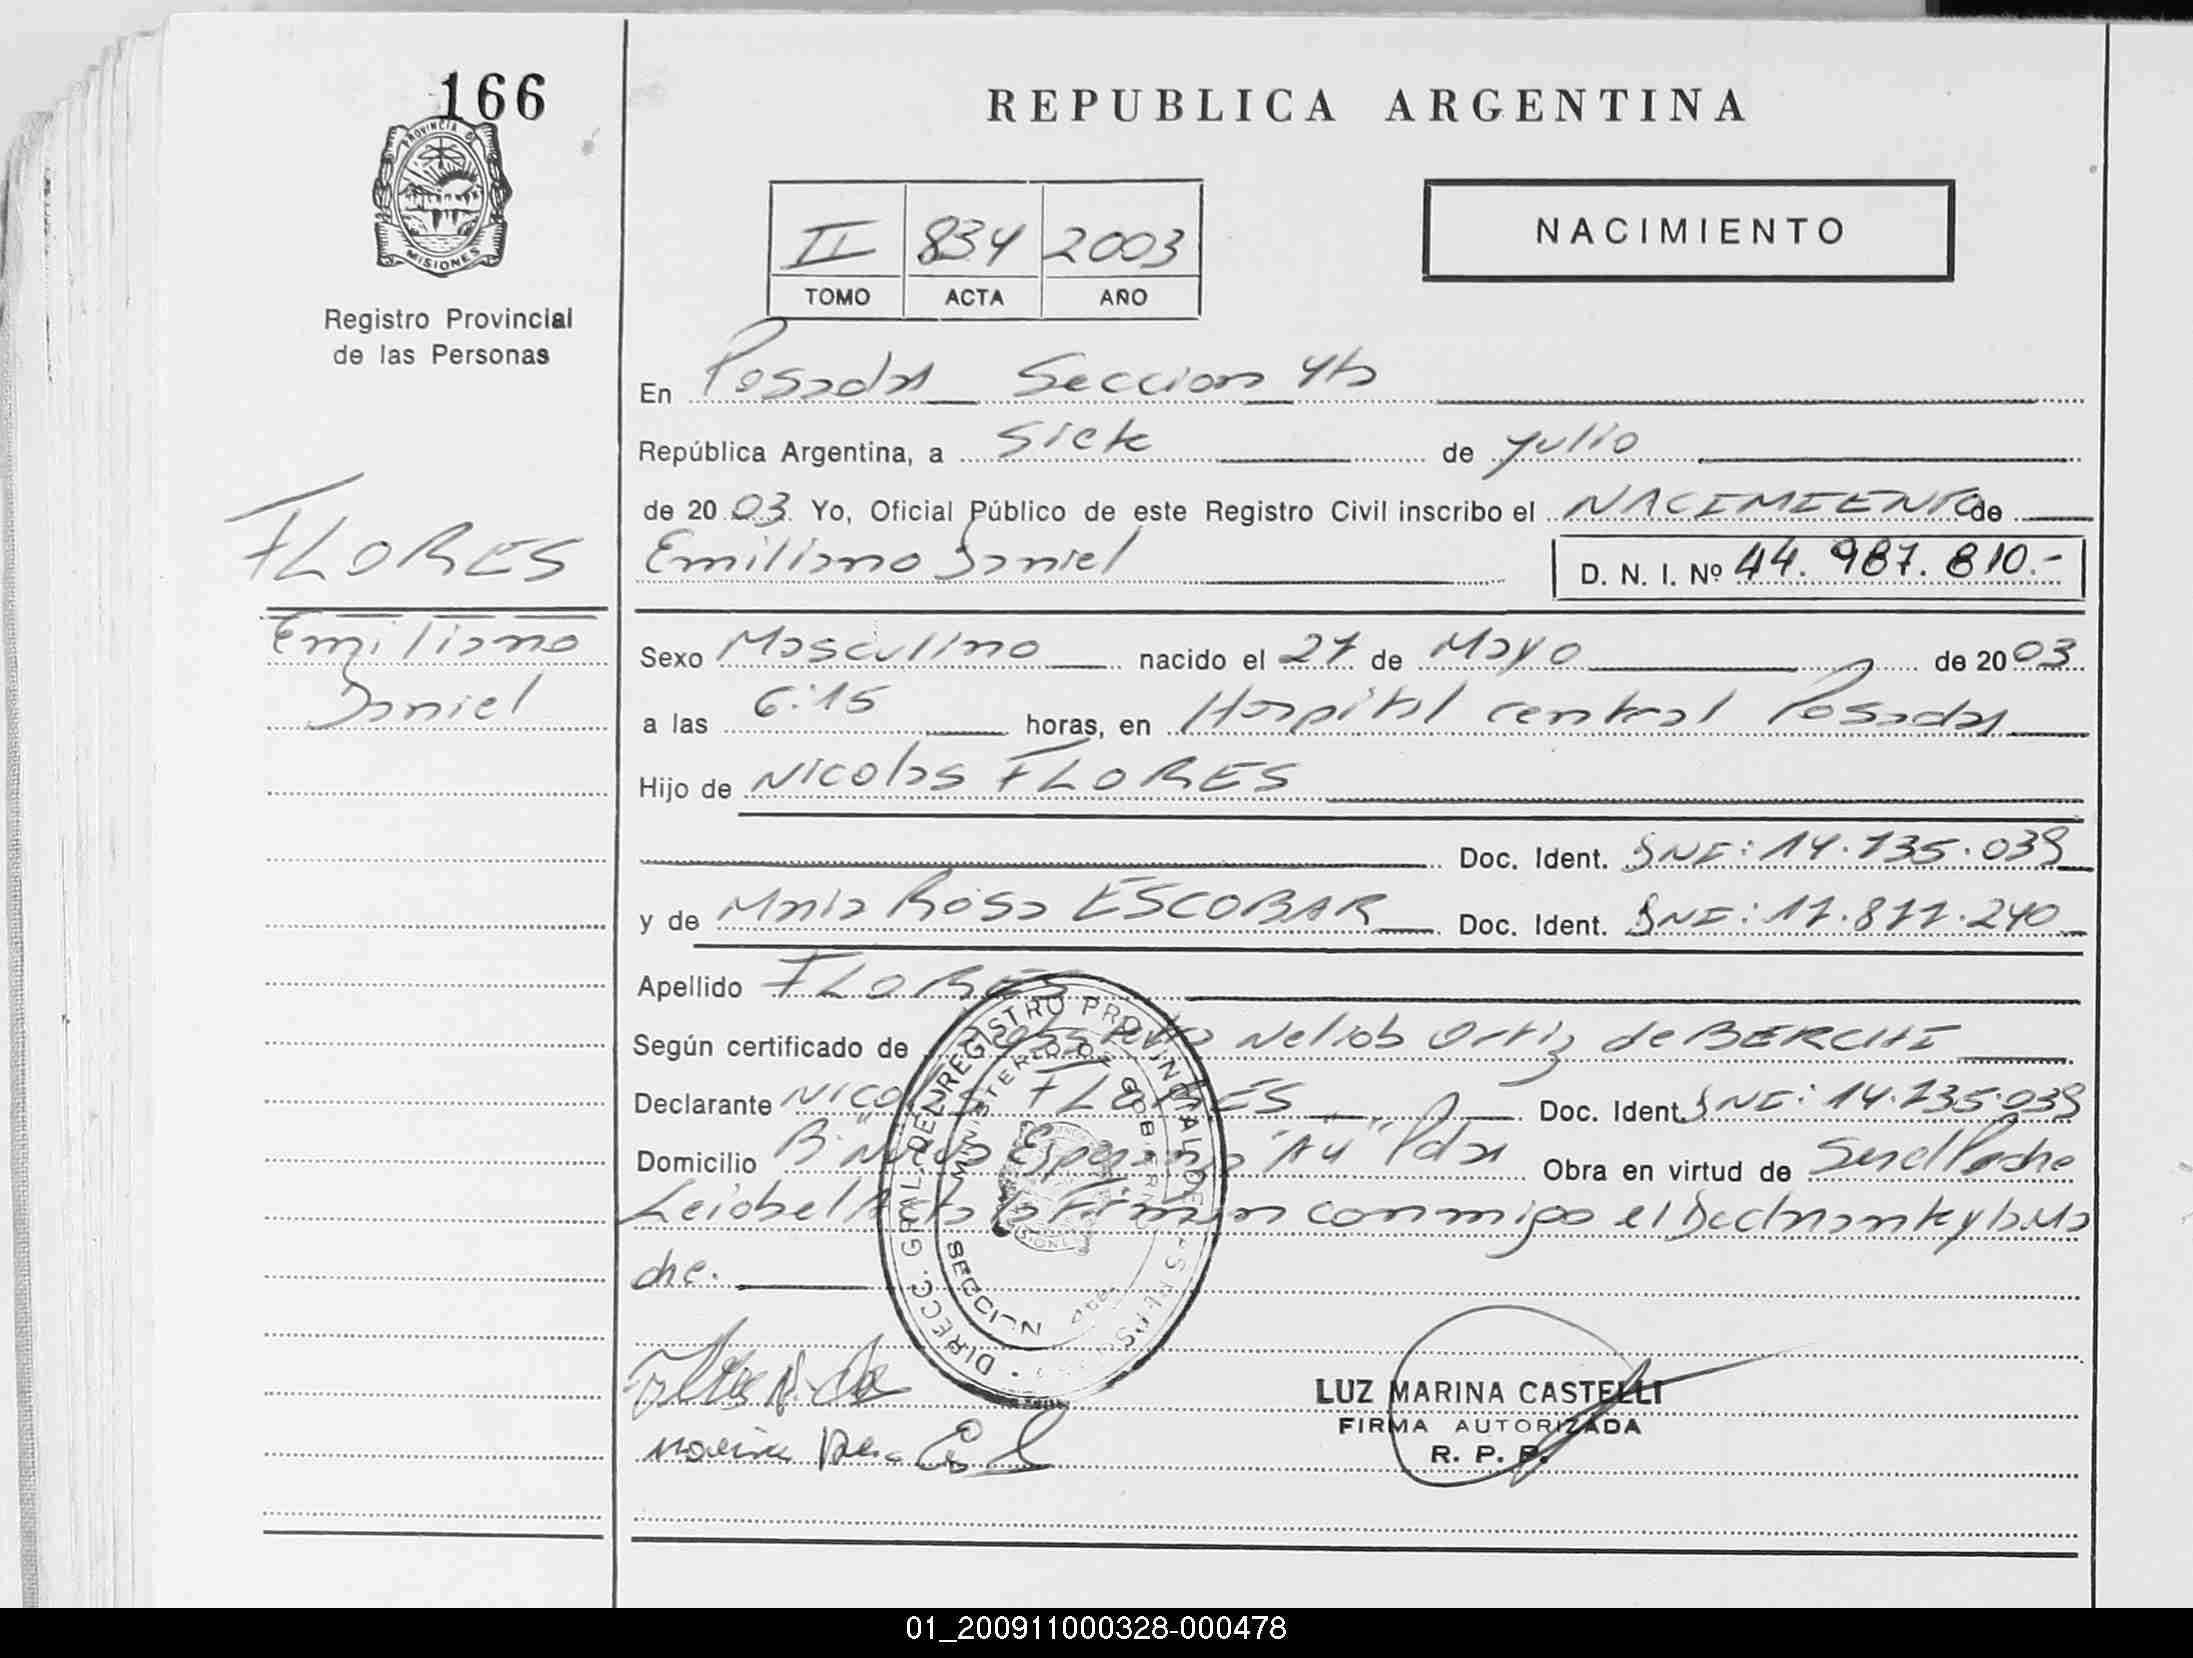 166
PROVINCIA DE
MISIONES
Registro Provincial
de las Personas
FLORES
Emiliano
Daniel
REPUBLICA ARGENTINA
II 834 2003
TOMO ACTA AÑO
NACIMIENTO
En Posadas Seccion 4ta
República Argentina, a Siete de Julio
de 2003 Yo, Oficial Público de este Registro Civil inscribo el NACIMIENTO de
Emiliano Daniel D. N. I. Nº 44.987.810.-
Sexo Masculino nacido el 27 de Mayo de 2003
a las 6:15 horas, en Hospital central Posadas
Hijo de Nicolas FLORES
Doc. Ident. DNI: 14.735.039
y de Maria Rosa ESCOBAR Doc. Ident. DNI: 17.877.240
Apellido FLORES
Según certificado de Ortiz de BERCHI
Declarante Nicolas FLORES Doc. Ident. DNI: 14.735.039
Domicilio B° Nueva Esperanza Pdas Obra en virtud de Ser el Padre
Leida el Acta la Firman conmigo el Declarante y la Ma
dre.
DIRECC. GRAL. DEL REGISTRO PROVINCIAL DE LAS PERSONAS
MINISTERIO DE GOBIERNO
SECCION
LUZ MARINA CASTELLI
FIRMA AUTORIZADA
R. P. P.
01_200911000328-000478